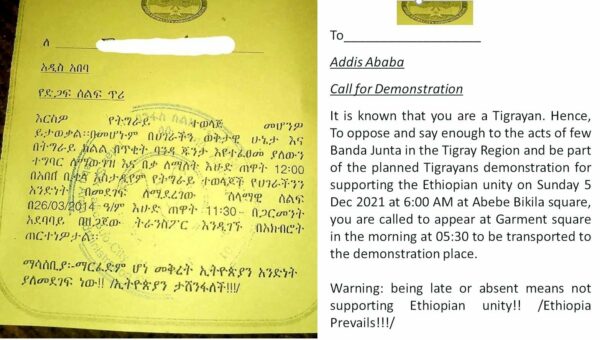 ለ
አዲስ አበባ
የድጋፍ ሰልፍ ጥሪ
እርስዎ የትግራይ ተወላጅ መሆንዎ
ይታወቃል።በመሆኑም በሀገራችን ወቅታዊ ሁኔታ እና
በትግራይ ክልል በጥቂት ባንዳ ጁንታ እየተፈፀመ ያለውን
ተግባር ለማውገዝ እና በቃ ለማለት እሁድ ጠዋት 12:00
በአበበ ቢቂላ አስታዲየም የትግራይ ተወላጆች የሀገራችንን
አንድነት በመደገፍ ለሚደረገው ሰላማዊ ሰልፍ
በ26/03/2014 ዓ/ም እሁድ ጠዋት 11:30- በጋርመንት
አደባባይ በተዘጋጀው ትራንስፖር እንዲገኙ በአክብሮት
ጠርተነዎታል።
ማሳሰቢያ:-ማርፈድም ሆነ መቅረት ኢትዮጵያን አንድነት
ያለመደገፍ ነው!! /ኢትዮጵያ ታሸንፋለች!!!/
To
Addis Ababa
Call for Demonstration
It is known that you are a Tigrayan. Hence,
To oppose and say enough to the acts of few
Banda Junta in the Tigray Region and be part
of the planned Tigrayans demonstration for
supporting the Ethiopian unity on Sunday 5
Dec 2021 at 6:00 AM at Abebe Bikila square,
you are called to appear at Garment square
in the morning at 05:30 to be transported to
the demonstration place.
Warning: being late or absent means not
supporting Ethiopian unity!! /Ethiopia
Prevails!!!/